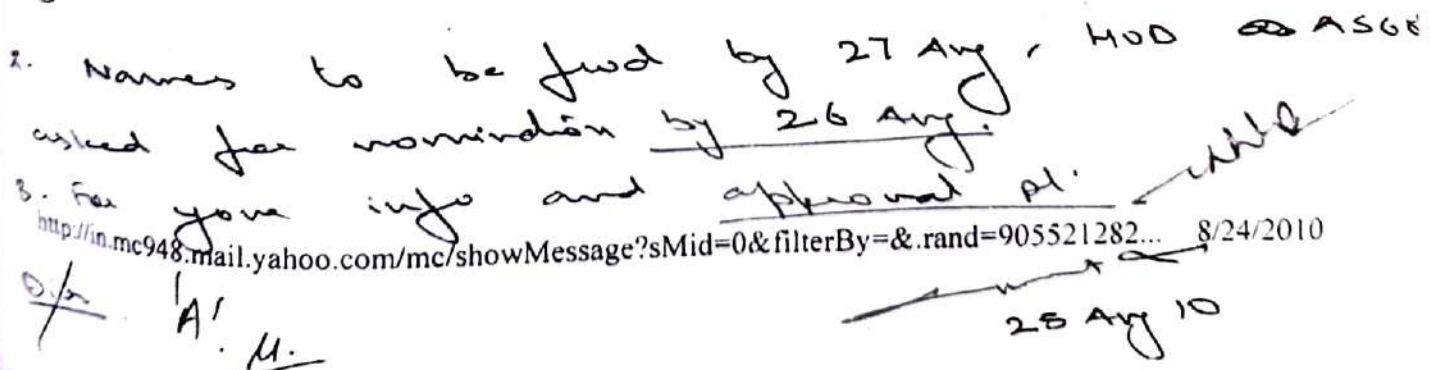 2. Names to be fwd by 27 Aug, HOD ASGE
asked for nomination by 26 Aug.
3. For your info and approval pl.
http://in.mc948.mail.yahoo.com/mc/showMessage?sMid=0&filterBy=&.rand=905521282... 8/24/2010
'A'
25 Aug 10